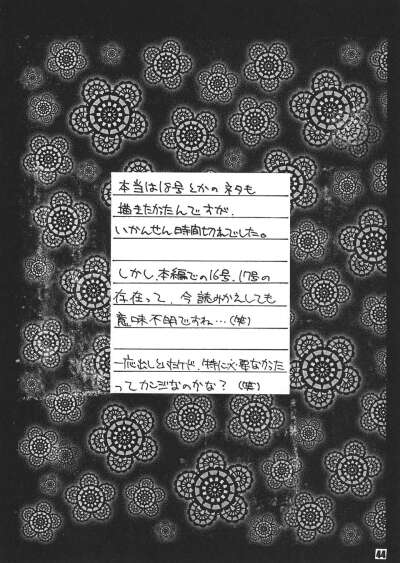 本当は18号とかのネタも
描きたかたんですが、
いかんせん時間切れでした。
しかし、本編での16号、17号の
存在って、今読みかえしても
意味不明ですね…(笑)
一応出しとけど、特に必要なかた
ってカンジなのかな?(笑)
44